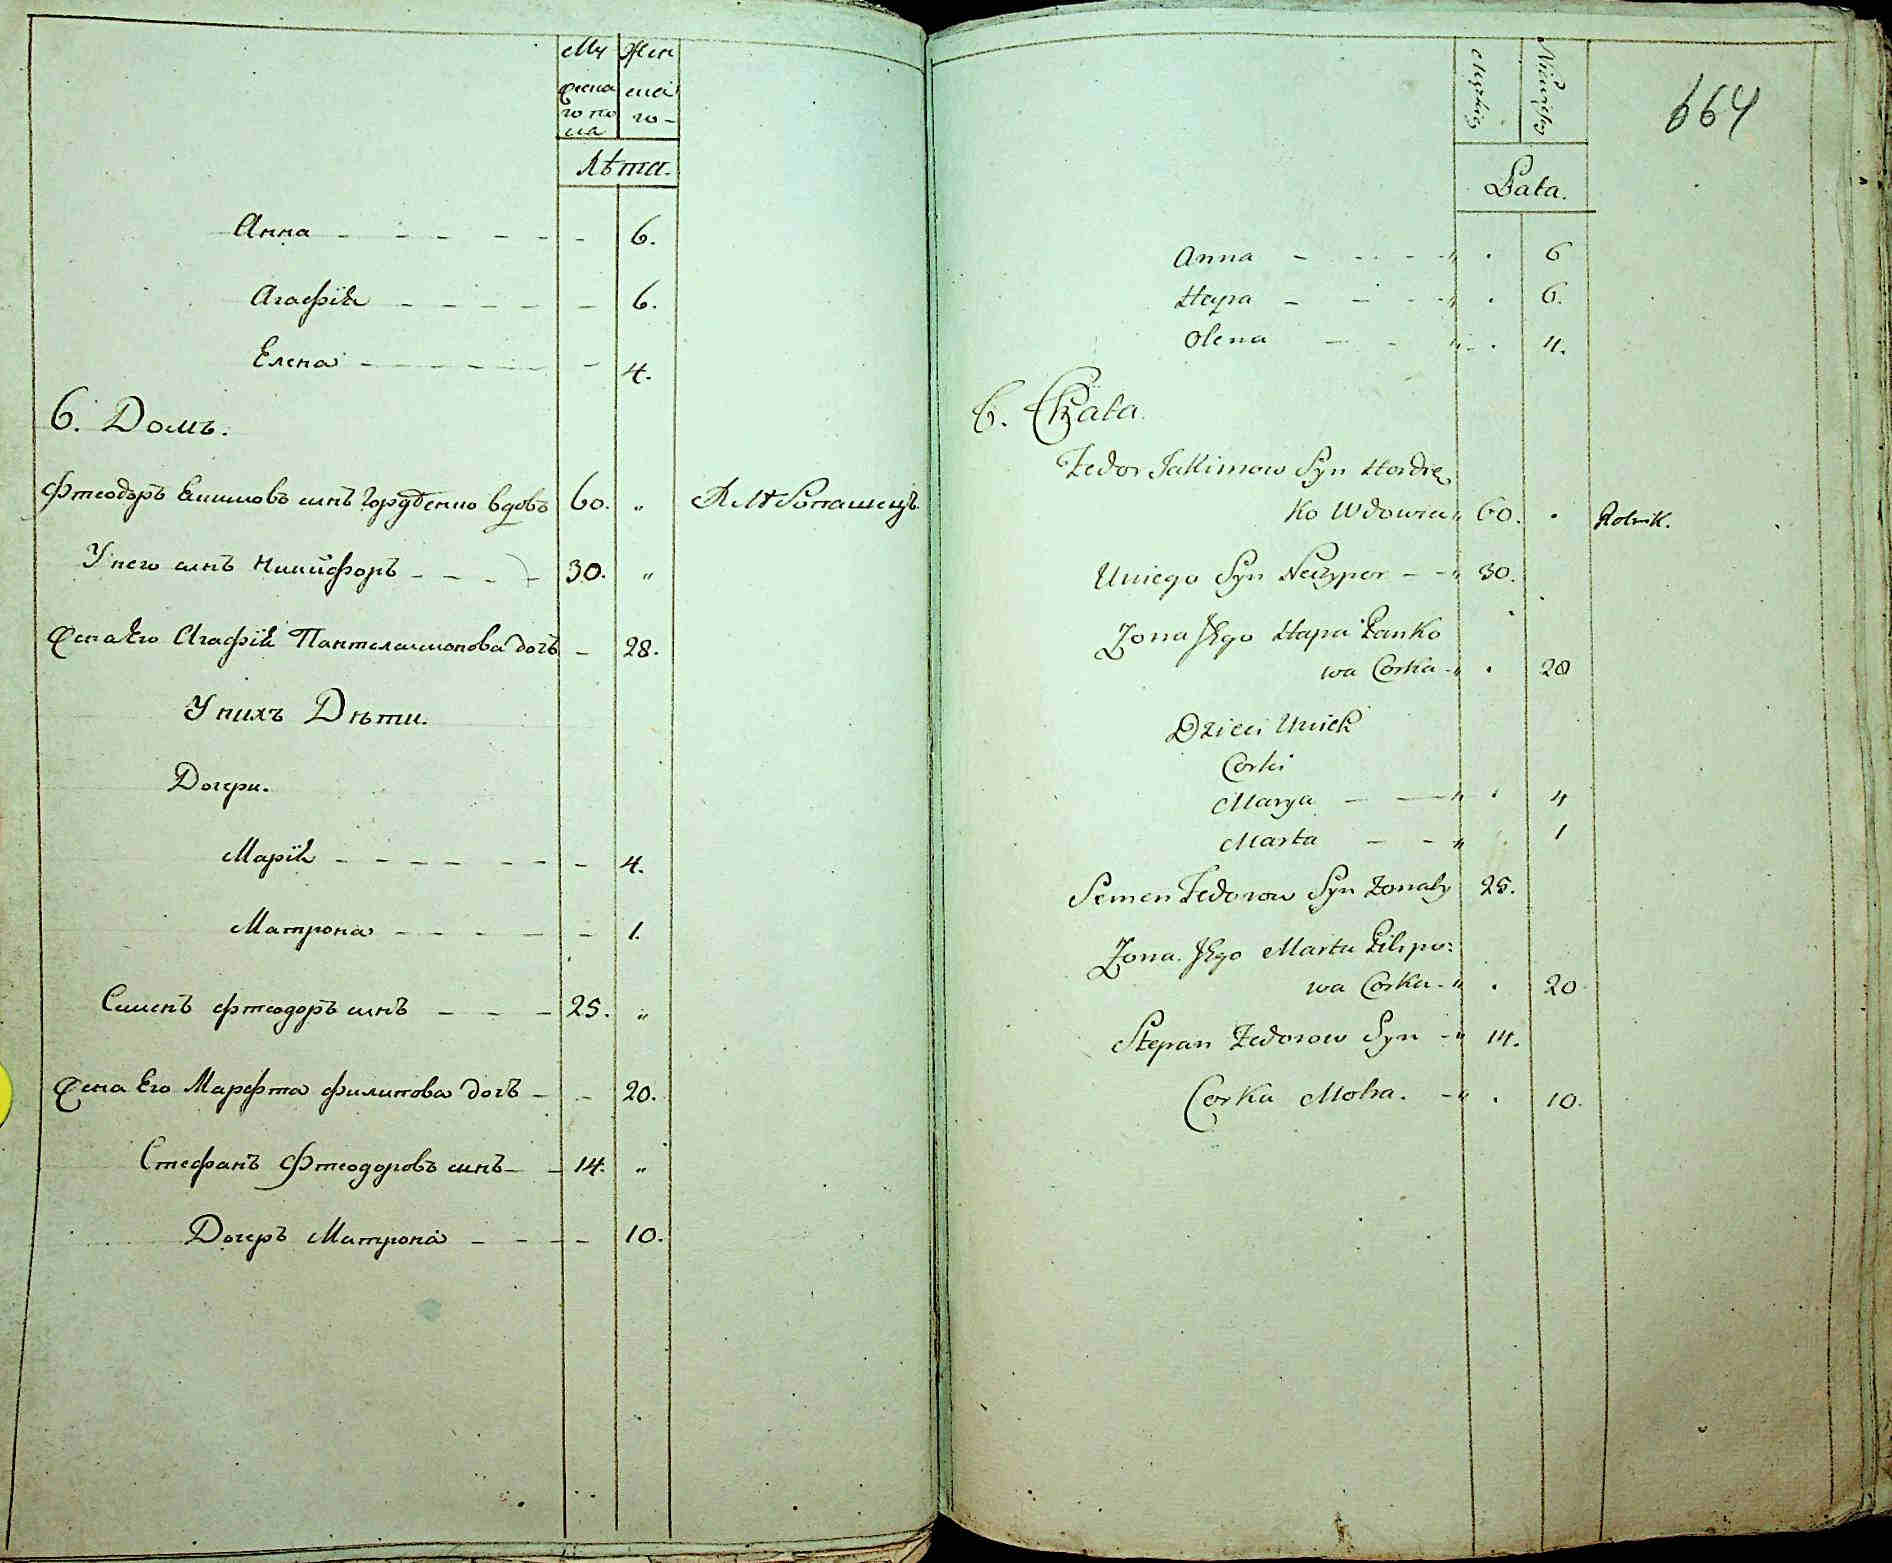 Му Жен
жеска ска
го по го-
ла
Лѣта.
Анна - - - - - - 6.
Агафія - - - - - - 6.
Елена - - - - - - 4.
6. Домъ.
Фтеодоръ Екимовъ синъ Гордѣенко вдовъ 60. „
У него синъ Никифоръ - - - - 30. „
Жена Его Агафія Пантелеимонова дочъ - 28.
У нихъ Дѣти.
Дочери.
Марія - - - - - - - 4.
Матрона - - - - - - 1.
Сименъ Фтеодоръ синъ - - - 25. „
Жена Его Марфта Филипова дочъ - - 20.
Стефанъ Фтеодоровъ синъ - - 14. „
Дочеръ Матрона - - - - 10.
664
Męzkiey Niewieskey
Lata.
Anna - - - - „ . 6
Hapa - - - - „ . 6.
Olena - - „ - . 4.
6. Chata.
Fedor Jakimow Syn Hordie
ko Wdowiec „ 60. . Rolnik.
U niego Syn Neczypor - - „ 30.
Żona Jego Hapa Panko
wa Corka - „ . 28
Dzieci U nich
Corki
Marya - - „ . 4
Marta - - „ . 1
Semen Fedorow Syn Żonaty 25.
Żona Jego Marta Filipo:
wa Corka - „ . 20
Stepan Fedorow Syn - „ 14.
Corka Motra. - „ . 10.